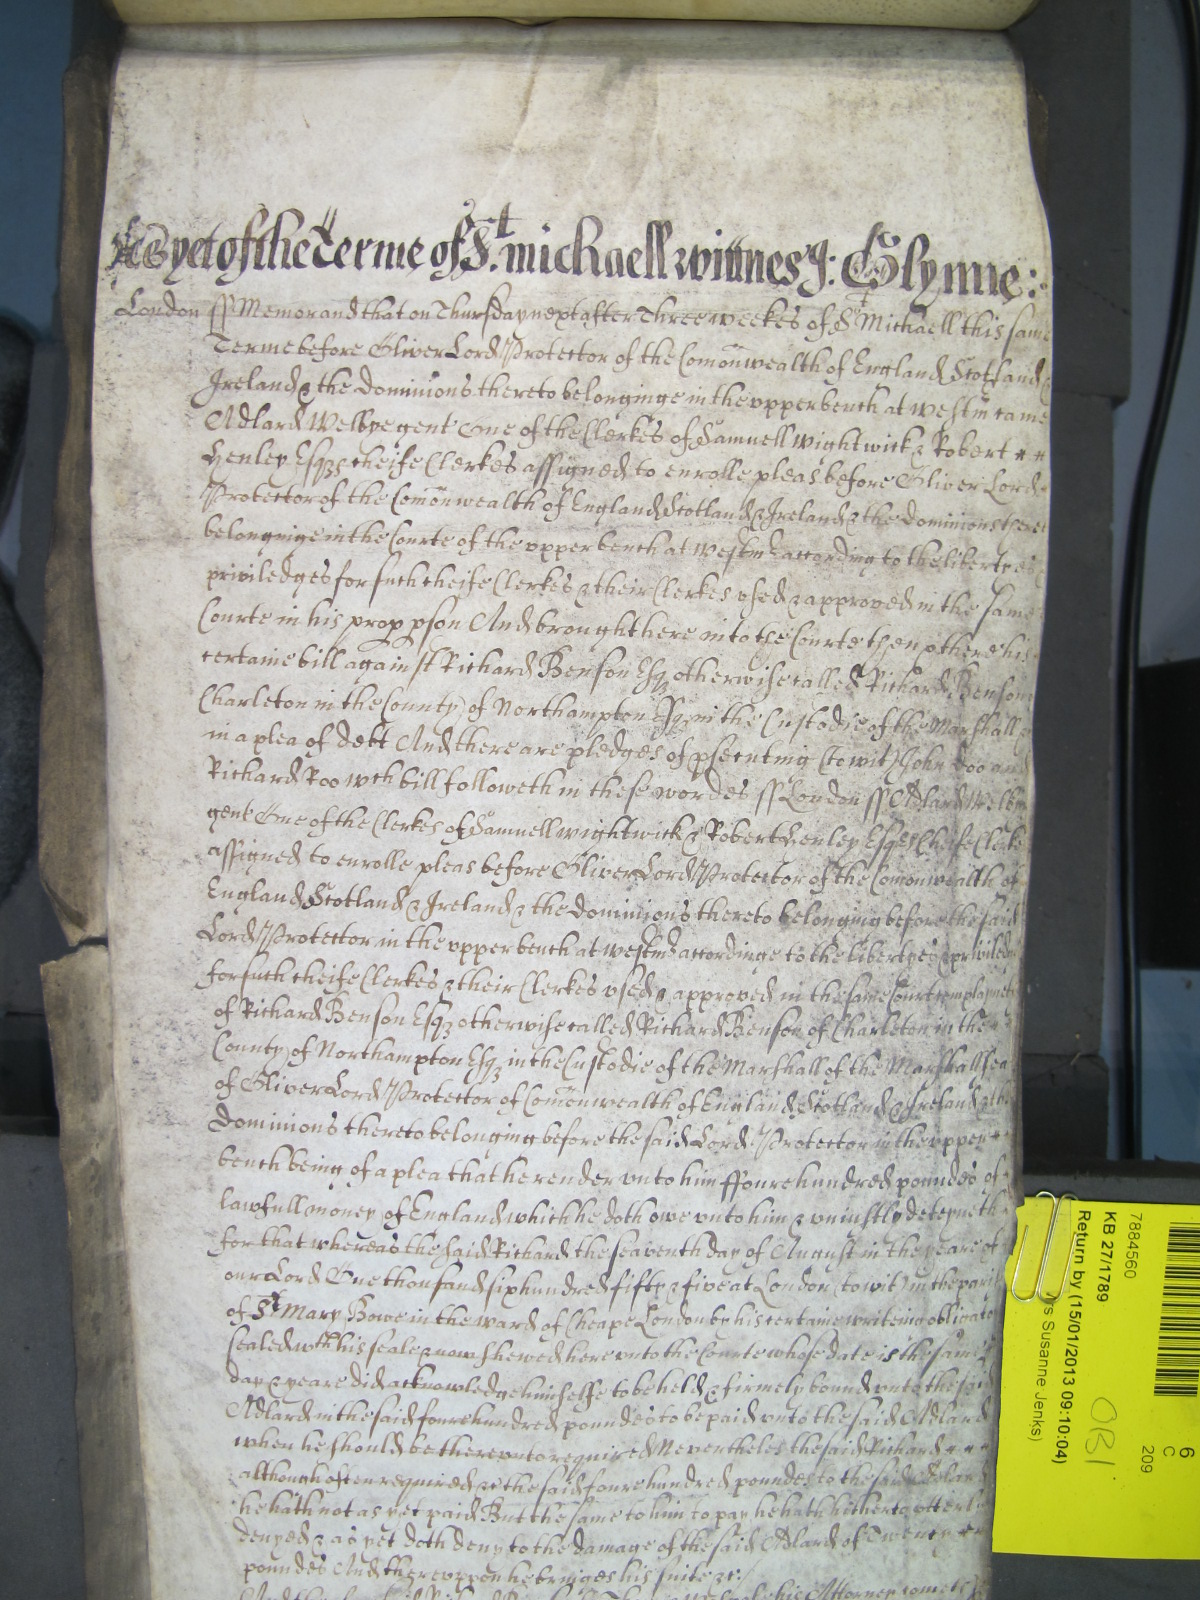 yet of the Terme of St. Michaell wittnes J: Glynne:
London ss Memorand that on Thursday next after Three weekes of St Michaell this same
Terme before Oliver Lord Protector of the Comonwealth of England Scotland &
Ireland & the dominions thereto belonginge in the upper bench at Westm came
Adlard Welbye gent One of the Clerkes of Samuell Wightwick & Robert
Henley Esqrs cheife Clerkes assigned to enrolle pleas before Oliver Lord
Protector of the Comonwealth of England Scotland & Ireland & the dominions
belonginge in the Courte of the upper bench at Westmr according to the libertyes
priviledges for such cheife Clerkes & their Clerkes used & approved in the same
Courte in his prop pson And brought here into the Courte then & there his
certaine bill against Richard Benson Esqr otherwise called Richard Benson
Charleton in the County of Northampton Esqr in the Custodie of the Marshall &
in a plea of debt And there are pledges of psecuting (to wit) John Doo and
Richard Roo wch bill followeth in these wordes ss London ss Adlard
gent One of the Clerkes of Samuell Wightwick & Robert Henley Esqrs Cheife
assigned to enrolle pleas before Oliver Lord Protector of the Comonwealth of
England Scotland & Ireland & the dominions thereto belonging before the said
Lord Protector in the upper bench at Westmr accordinge to the libertyes &
for such cheife Clerkes & their Clerkes used & approved in the same Court
of Richard Benson Esqr otherwise called Richard Benson of Charleton in the
County of Northampton Esqr in the Custodie of the Marshall of the Marshallsea
of Oliver Lord Protector of Comonwealth of England Scotland & Ireland & the
dominions thereto belonging before the said Lord Protector in the upper
bench being of a plea that he render unto him ffoure hundred poundes of
lawfull money of England which he doth owe unto him & uniustly deteyneth
for that whereas the said Richard the seaventh day of August in the yeare of
our Lord One thousand six hundred fifty & five at London (to wit) in the
of St Mary Bowe in the ward of Cheape London by his certaine writeing
sealed wth his seale & now shewed here unto the Courte whose date is the same
day & yeare did acknowledge himselfe to be held & firmely bound unto the said
Adlard in the said foure hundred poundes to be paid unto the said Adlard
when he should be thereunto required Nevertheles the said Richard
although often required &c the said foure hundred poundes to the said Adlard
he hath not as yet paid But the same to him to pay he hath hitherto
denyed & as yet doth deny to the damage of the said Adlard of Twenty
poundes And thereuppon he bringes his suite &c:
his Attorney comets
7884560
KB 27/1789
Return by (15/01/2013 09:10:04)
s Susanne Jenks)
OBJ
6
C
209